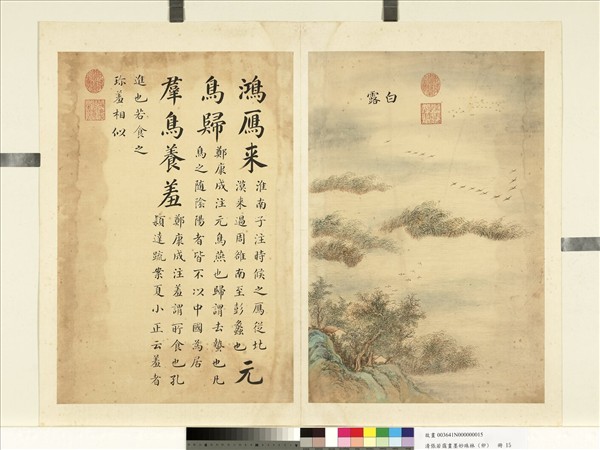 白露
鴻鴈来
淮南子注時候之鴈從北
漠来過周雒南至彭蠡也
元
鳥歸
鄭康成注元鳥燕也歸謂去蟄也凡
鳥之随陰陽者皆不以中國為居
羣鳥養羞
鄭康成注羞謂所食也孔
頴達疏案夏小正云羞者
進也若食之
珎羞相似
故畫 003641N000000015
清張若靄畫墨妙珠林（卯） 冊 15